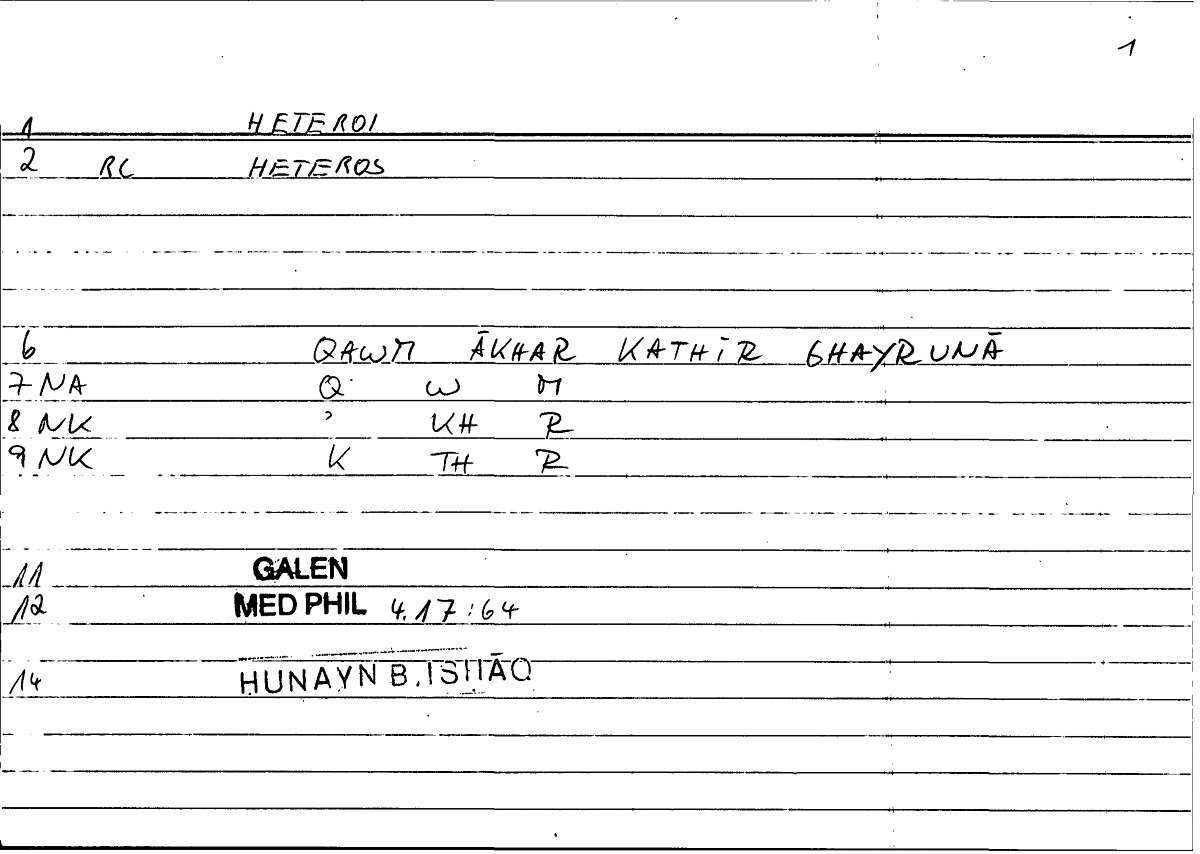 1
1 HETEROI
2 RC HETEROS
6 QAWM ĀKHAR KATHIR GHAYRUNĀ
7 NA Q W M
8 NK ʾ KH R
9 NK K TH R
11 GALEN
12 MED PHIL 4.17:64
14 HUNAYN B. ISHĀQ